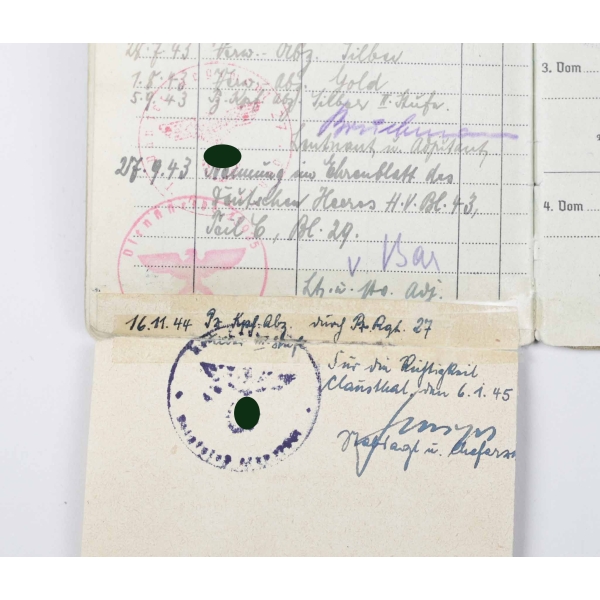 7.43 Verw.-Abz. Silber
1.8.43 Verw. Abz. Gold
5.9.43 Pz. Kpf. Abz. Silber II. Stufe.
Leutnant u. Adjutant
27.9.43 Nennung im Ehrenblatt des
Deutschen Heeres H.V.Bl. 43,
Teil C, Bl. 29.
v Bar
Lt. u. Adj.
16.11.44 Pz. Kpf. Abz. durch Pz. Rgt. 27
III. Stufe
Für die Richtigkeit
Clausthal, den 6.1.45
Stabsarzt u. Chefarzt
3. Vom
4. Vom